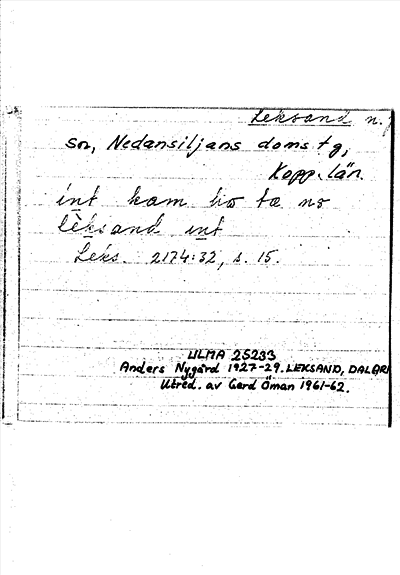 Leksand n.
sn, Nedansiljans doms tg,
Kopp. län.
int kam ho tæ no
lèksand int
Leks. 2174:32, s. 15.
ULMA 25233
Anders Nygård 1927-29. LEKSAND, DALAR
Utred. av Gerd Öman 1961-62.